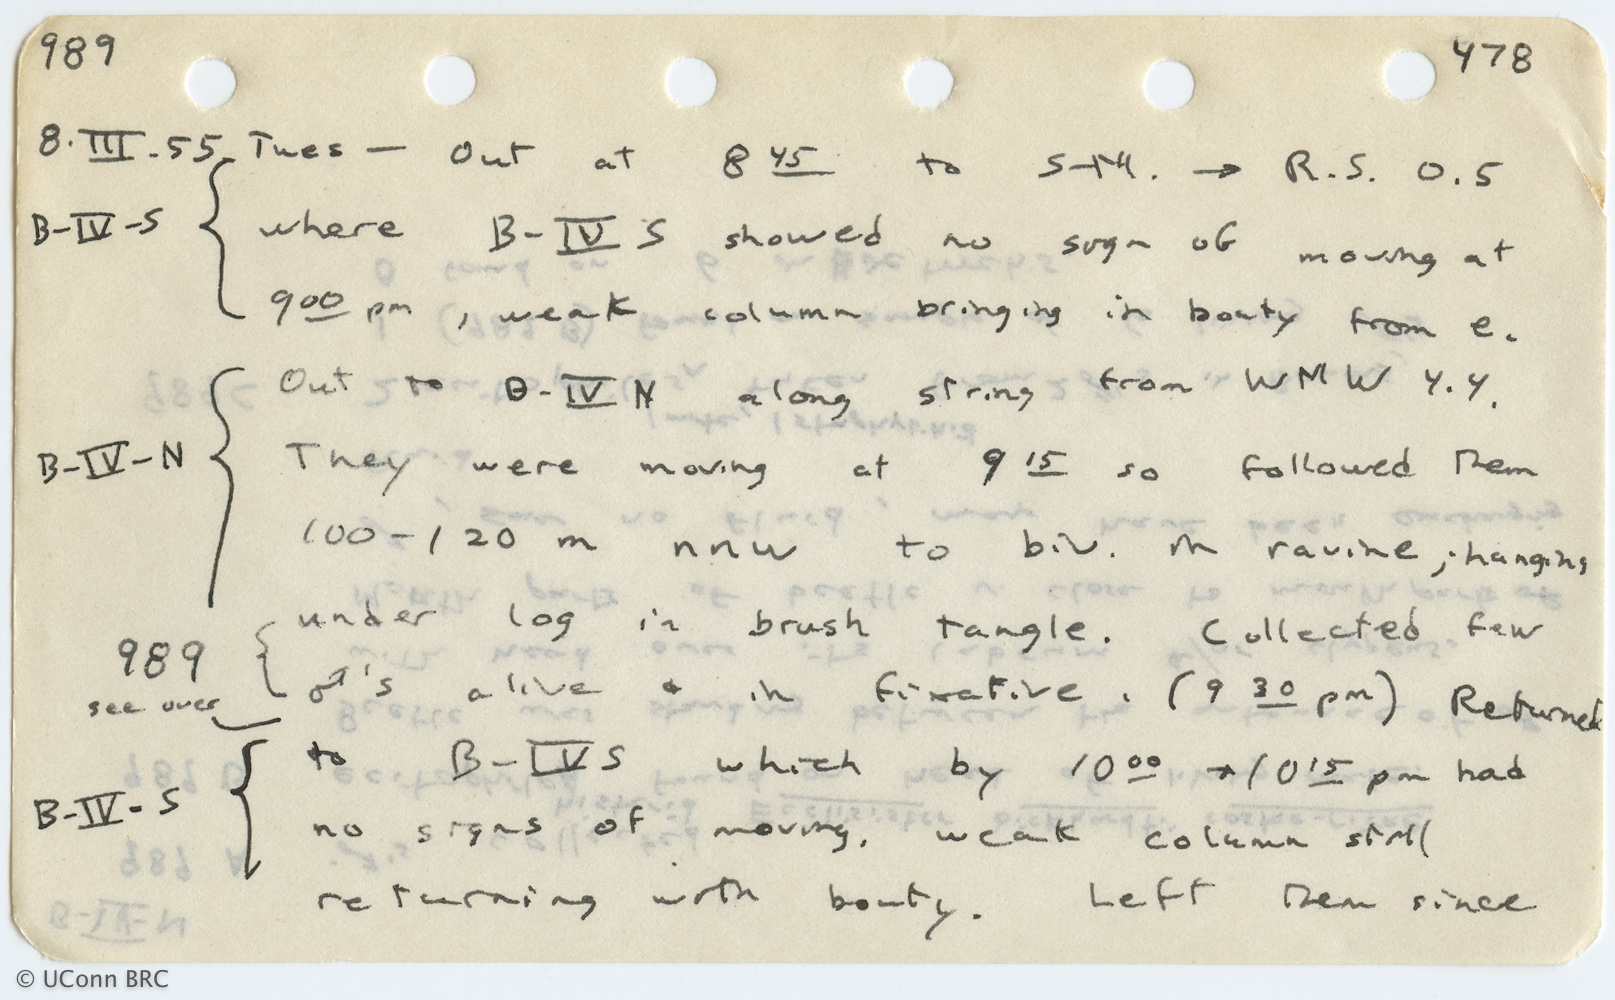 989 478
8.III.55 Tues — Out at 8 45 to S-M. → R.S. 0.5
B-IV-S where B-IV S showed no sign of moving at
9 00 pm, weak column bringing in bouty from e.
Out to B-IV N along string from WMW 4.4.
B-IV-N They were moving at 9 15 so followed them
100-120 m nnw to biv. in ravine, hanging
under log in brush tangle. Collected few
989 ♂'s alive & in fixative. (9 30 pm) Returned
see over
to B-IV S which by 10 00 → 10 15 pm had
B-IV-S no signs of moving, weak column still
returning with bouty. Left them since
© UConn BRC